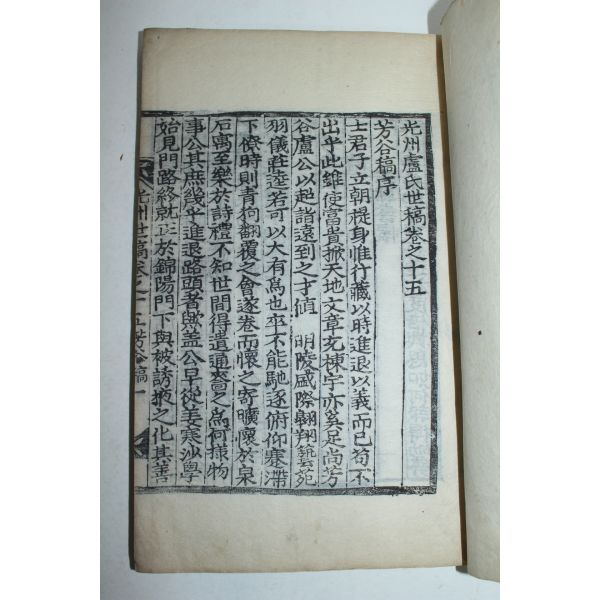 光州盧氏世稿卷之十五
芳谷稿序
士君子立朝禔身惟行藏以時進退以義而已苟不
出乎此雖使富貴掀天地文章充棟宇亦奚足尚芳
谷盧公以起諸遠到之才値 明陵盛際翺翔藝苑
羽儀莊逵若可以大有爲也卒不能馳逐俯仰塞滯
下僚時則靑狗翻覆之會遂卷而懷之寄曠懷於泉
石寓至樂於詩禮不知世間得喪通塞之爲何樣物
事公其庶幾乎進退路頭者歟盖公早從姜寒沙學
始見門路終就正於錦陽門下與被誘掖之化其善
光州世稿卷之十五芳谷稿 一